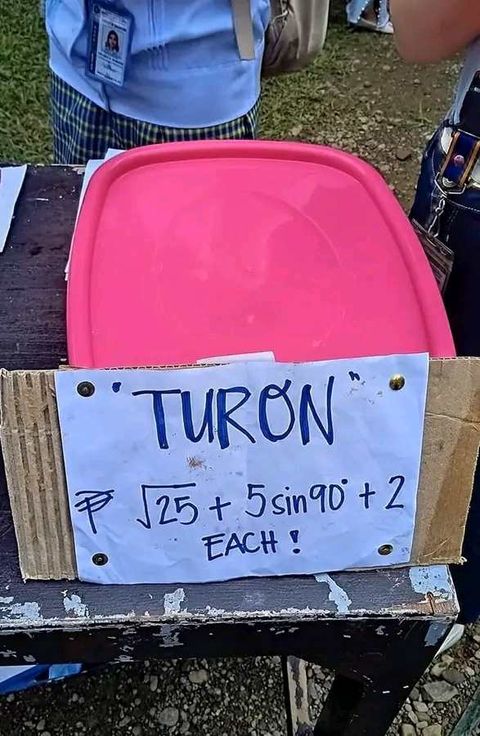 "TURON"
₱ √25 + 5sin90° + 2
EACH!